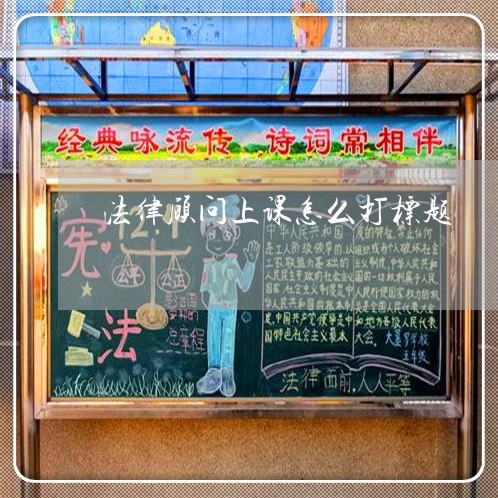 经典咏流传 诗词常相伴
法律顾问上课怎么打標题
宪
法
12.4
公平
公正
总章程
中华人民共和国
是工人阶级领导的,以
工农联盟为基础的
人民民主专政的社会主义
国家.社会主义制度是中
华人民共和国的根本制
度.中国共产党领导是中
国特色社会主义最本
质的特征.禁止任何
组织或者个人破坏社会
主义制度.中华人民共和
国的一切权利属于人民.
人民行使国家权力的机
关是全国人民代表大会
和地方各级人民代表
大会.
五年级
法律面前,人人平等